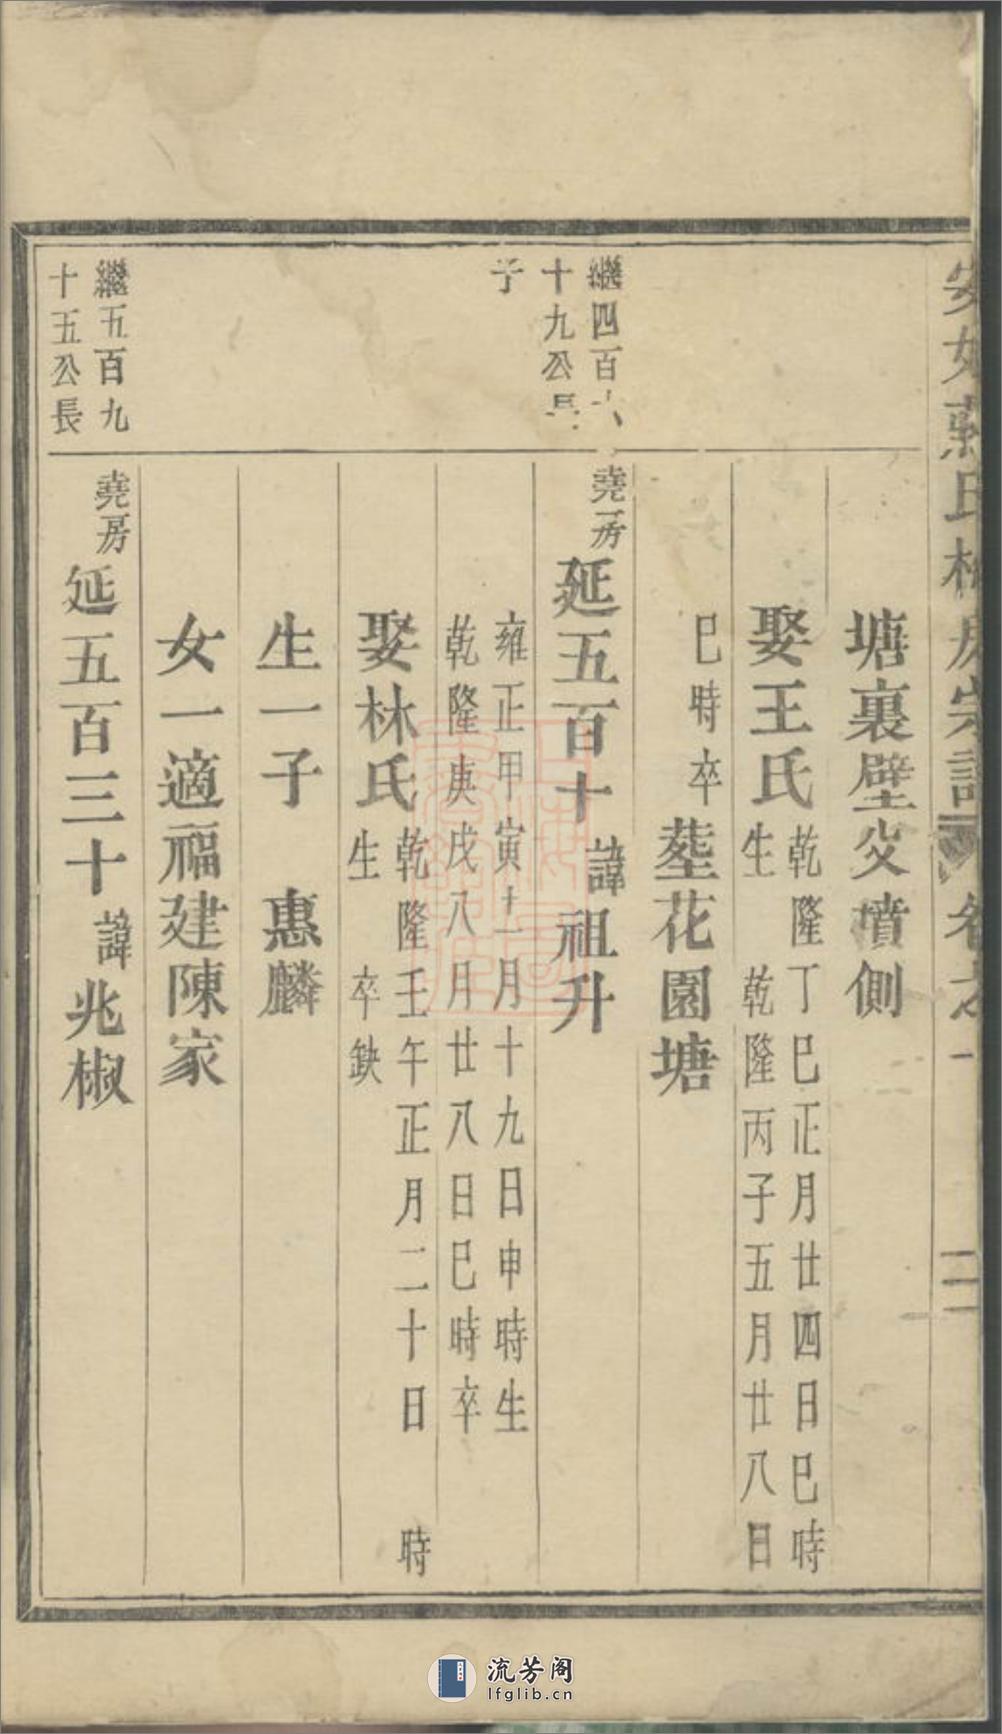 塘裏壁父墳側
娶王氏 乾隆丁巳正月廿四日巳時生 乾隆丙子五月廿八日
巳時卒 塟花園塘
繼四百
十九公長
子
堯房 延五百十 諱 祖升
雍正甲寅十一月十九日申時生
乾隆庚戌八月廿八日巳時卒
娶林氏 乾隆壬午正月二十日 時生 卒缺
生一子 惠麟
女一適福建陳家
繼五百九
十五公長
堯房 延五百三十 諱 兆椒
流芳阁
lfglib.cn